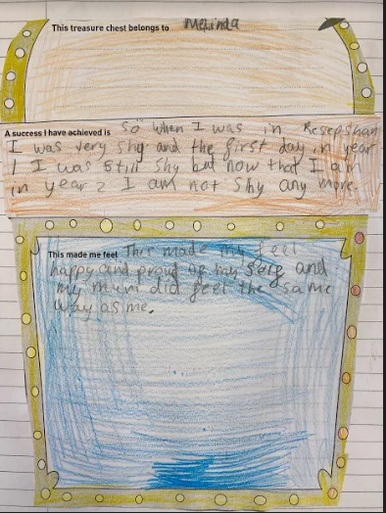 This treasure chest belongs to Melinda
A success I have achieved is So when I was in Resepshan
I was very shy and the first day in year
1 I was still shy but now that I am
in year 2 I am not shy any more.
This made me feel This made my feel
happy and proud of my self and
my mum did feel the same
way as me.